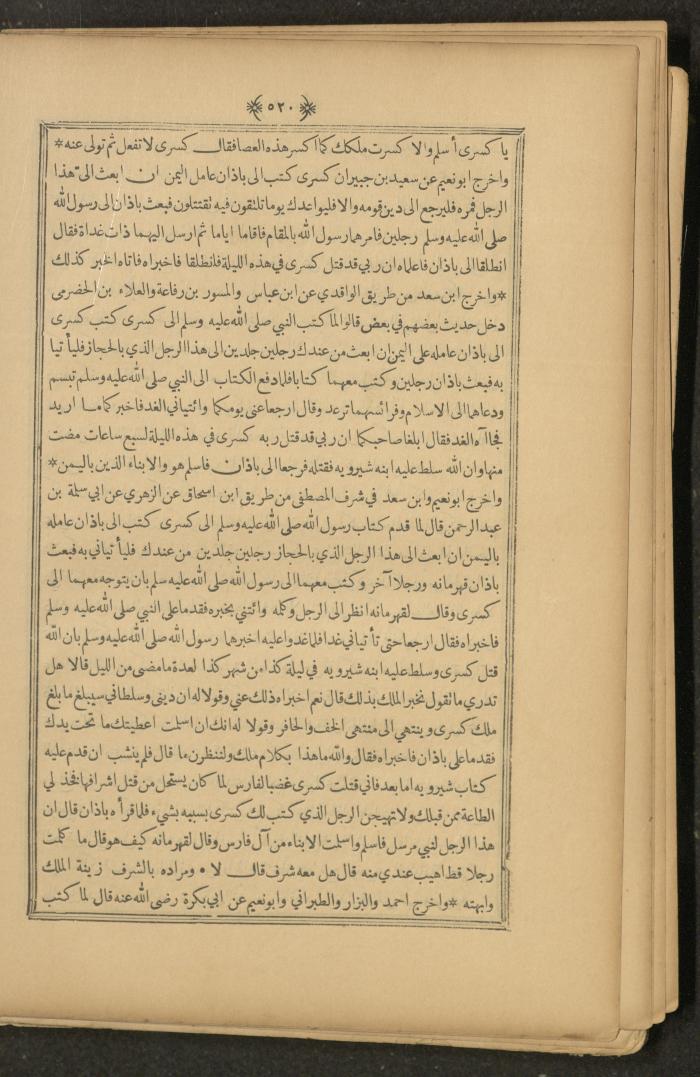 ٥٢٠
يا كسرى أسلم والا كسرت ملكك كما اكسر هذه العصا فقال كسرى لا تفعل ثم تولى عنه *
واخرج ابو نعيم عن سعيد بن جبير ان كسرى كتب الى باذان عامل اليمن ان ابعث الى هذا
الرجل فمره فليرجع الى دين قومه والا فليواعدك يوما تلتقون فيه تقتتلون فبعث باذان الى رسول الله
صلى الله عليه وسلم رجلين فامرهما رسول الله بالمقام فاقاما اياما ثم ارسل اليهما ذات غداة فقال
انطلقا الى باذان فاعلماه ان ربي قد قتل كسرى في هذه الليلة فانطلقا فاخبراه فاتاه الخبر كذلك
* واخرج ابن سعد من طريق الواقدي عن ابن عباس والمسور بن رفاعة والعلاء بن الحضرمى
دخل حديث بعضهم في بعض قالوا لما كتب النبي صلى الله عليه وسلم الى كسرى كتب كسرى
الى باذان عامله على اليمن ان ابعث من عندك رجلين جلدين الى هذا الرجل الذي بالحجاز فليأتيا
به فبعث باذان رجلين وكتب معهما كتابا فلما دفع الكتاب الى النبي صلى الله عليه وسلم تبسم
ودعاهما الى الاسلام وفرائسهما ترعد وقال ارجعا عنى يومكما وائتياني الغد فاخبركما ما اريد
فجاآه الغد فقال ابلغا صاحبكما ان ربي قد قتل ربه كسرى في هذه الليلة لسبع ساعات مضت
منها وان الله سلط عليه ابنه شيرويه فقتله فرجعا الى باذان فاسلم هو والابناء الذين باليمن *
واخرج ابو نعيم وابن سعد في شرف المصطفى من طريق ابن اسحاق عن الزهري عن ابي سلمة بن
عبد الرحمن قال لما قدم كتاب رسول الله صلى الله عليه وسلم الى كسرى كتب الى باذان عامله
باليمن ان ابعث الى هذا الرجل الذي بالحجاز رجلين جلدين من عندك فليأتياني به فبعث
باذان قهرمانه ورجلا آخر وكتب معهما الى رسول الله صلى الله عليه سلم بان يتوجه معهما الى
كسرى وقال لقهرمانه انظر الى الرجل وكله وائتني بخبره فقدما على النبي صلى الله عليه وسلم
فاخبراه فقال ارجعا حتى تأتياني غدا فلما غدوا عليه اخبرهما رسول الله صلى الله عليه وسلم بان الله
قتل كسرى وسلط عليه ابنه شيرويه في ليلة كذا من شهر كذا لعدة ما مضى من الليل قالا هل
تدري ما تقول نخبر الملك بذلك قال نعم اخبراه ذلك عني وقولا له ان دينى وسلطاني سيبلغ ما بلغ
ملك كسرى وينتهي الى منتهى الخف والحافر وقولا له انك ان اسلمت اعطيتك ما تحت يدك
فقدما على باذان فاخبراه فقال والله ما هذا بكلام ملك ولننظرن ما قال فلم ينشب ان قدم عليه
كتاب شيرويه اما بعد فاني قتلت كسرى غضبا لفارس لما كان يستحل من قتل اشرافها فخذ لي
الطاعة ممن قبلك ولا تهيجن الرجل الذي كتب لك كسرى بسببه بشيء فلما قرأه باذان قال ان
هذا الرجل لنبي مرسل فاسلم واسلمت الابناء من آل فارس وقال لقهرمانه كيف هو قال ما كلمت
رجلا قط اهيب عندي منه قال هل معه شرف قال لا • ومراده بالشرف زينة الملك
وابهته * واخرج احمد والبزار والطبراني وابو نعيم عن ابي بكرة رضى الله عنه قال لما كتب